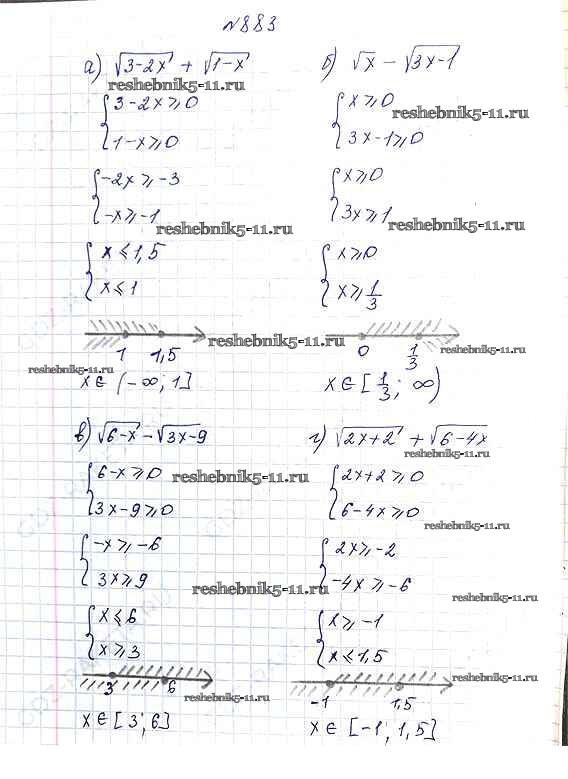 №883
а) √3-2x + √1-x
reshebnik5-11.ru
{3-2x ⩾ 0
1-x ⩾ 0
{-2x ⩾ -3
-x ⩾ -1
reshebnik5-11.ru
{x ⩽ 1,5
x ⩽ 1
1 1,5
reshebnik5-11.ru
reshebnik5-11.ru
x ∈ (-∞; 1]
б) √x - √3x-1
reshebnik5-11.ru
{x ⩾ 0
3x-1 ⩾ 0
{x ⩾ 0
3x ⩾ 1
reshebnik5-11.ru
{x ⩾ 0
x ⩾ 1/3
0 1/3
reshebnik5-11.ru
x ∈ [1/3; ∞)
в) √6-x - √3x-9
{6-x ⩾ 0
3x-9 ⩾ 0
reshebnik5-11.ru
{-x ⩾ -6
3x ⩾ 9
reshebnik5-11.ru
{x ⩽ 6
x ⩾ 3
3 6
reshebnik5-11.ru
x ∈ [3; 6]
г) √2x+2 + √6-4x
{2x+2 ⩾ 0
6-4x ⩾ 0
reshebnik5-11.ru
{2x ⩾ -2
-4x ⩾ -6
reshebnik5-11.ru
{x ⩾ -1
x ⩽ 1,5
-1 1,5
reshebnik5-11.ru
x ∈ [-1; 1,5]